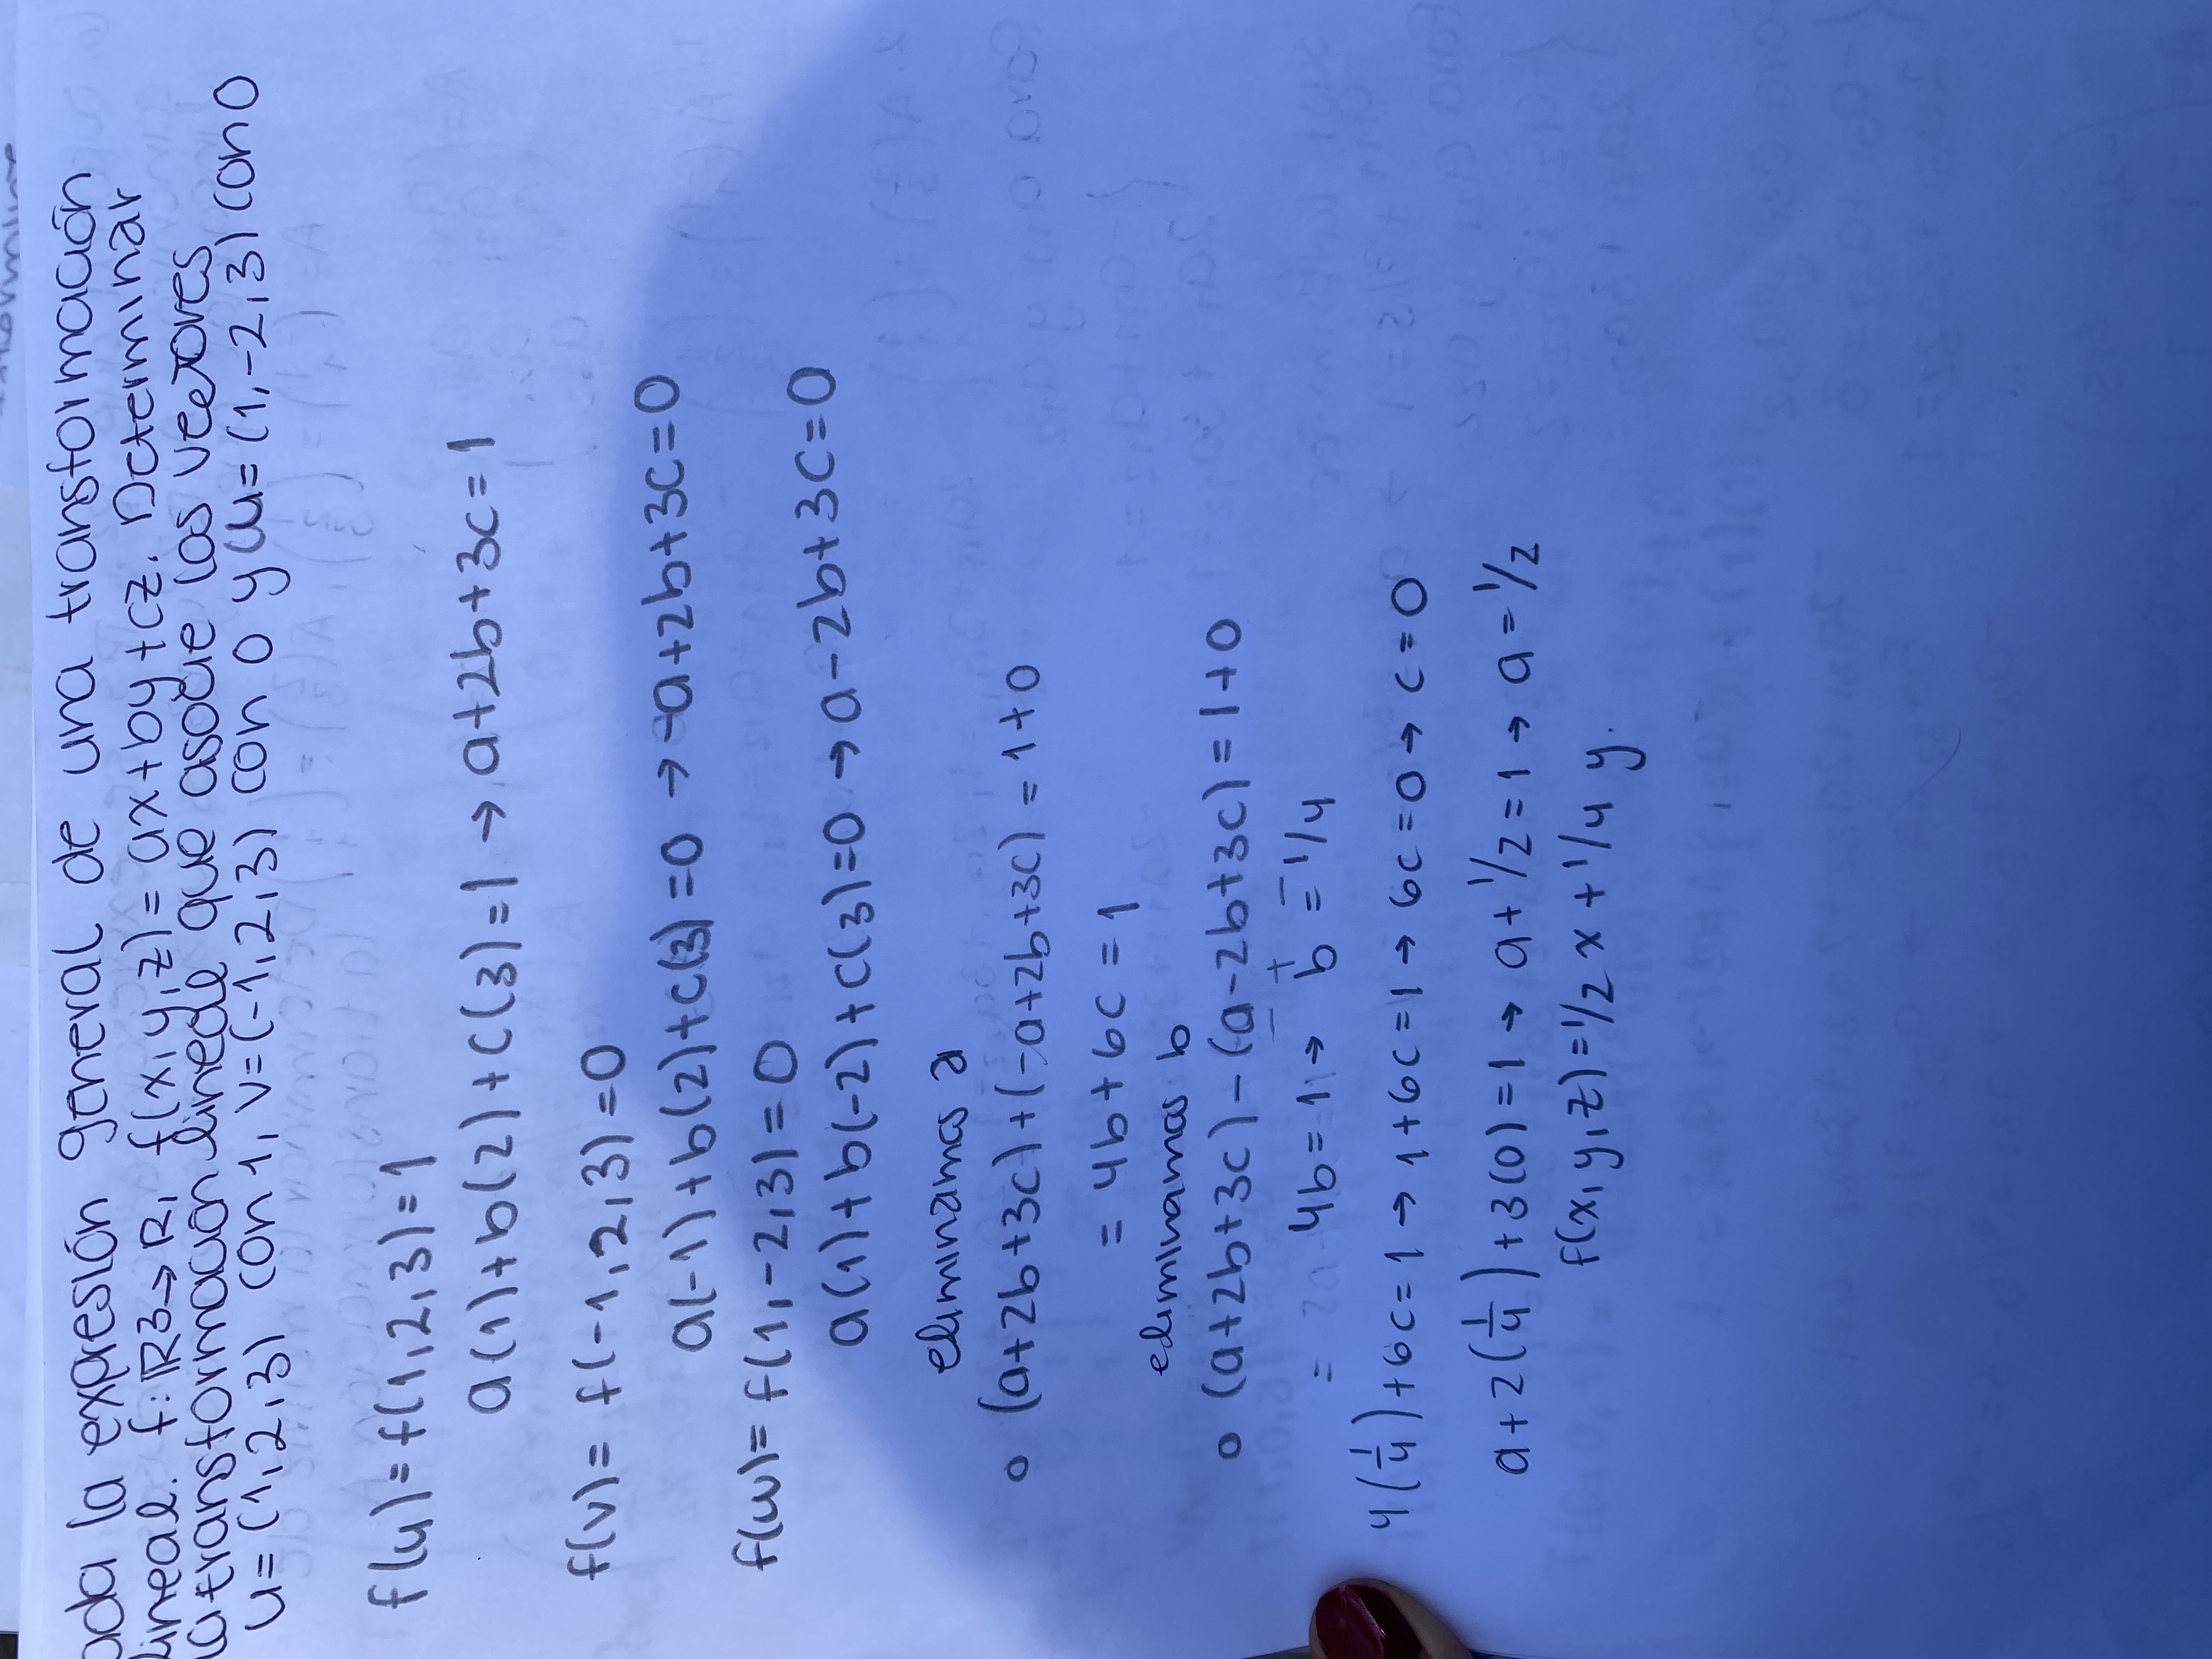 ada la expresión general de una transformación
lineal. f: ℝ3→R, f(x,y,z)= ax+by+cz. Determinar
la transformación lineal que asocie los vectores
u=(1,2,3) con 1, v=(-1,2,3) con 0 y w=(1,-2,3) con 0
f(u)=f(1,2,3)=1
a(1)+b(2)+c(3)=1 → a+2b+3c=1
f(v)= f(-1,2,3)=0
a(-1)+b(2)+c(3)=0 → -a+2b+3c=0
f(w)= f(1,-2,3)=0
a(1)+b(-2)+c(3)=0 → a-2b+3c=0
eliminamos a
o (a+2b+3c)+(-a+2b+3c) = 1+0
= 4b+6c = 1
eliminamos b
o (a+2b+3c)-(a-2b+3c)=1+0
- + -
= 4b=1 → b = 1/4
4(1/4)+6c=1 → 1+6c=1 → 6c=0 → c=0
a+2(1/4)+3(0)=1 → a+1/2=1 → a=1/2
f(x,y,z)=1/2 x + 1/4 y.